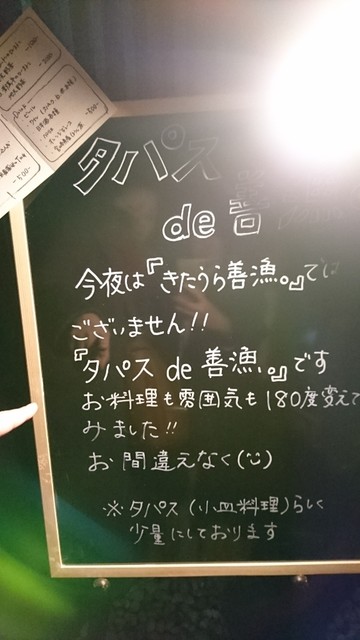 タパス
de 善
今夜は『きたうら善漁。』では
ございません!!
『タパス de 善漁。』です
お料理も雰囲気も180度変えて
みました!!
お間違えなく(ツ)
※タパス(小皿料理)らしく
少量にしております